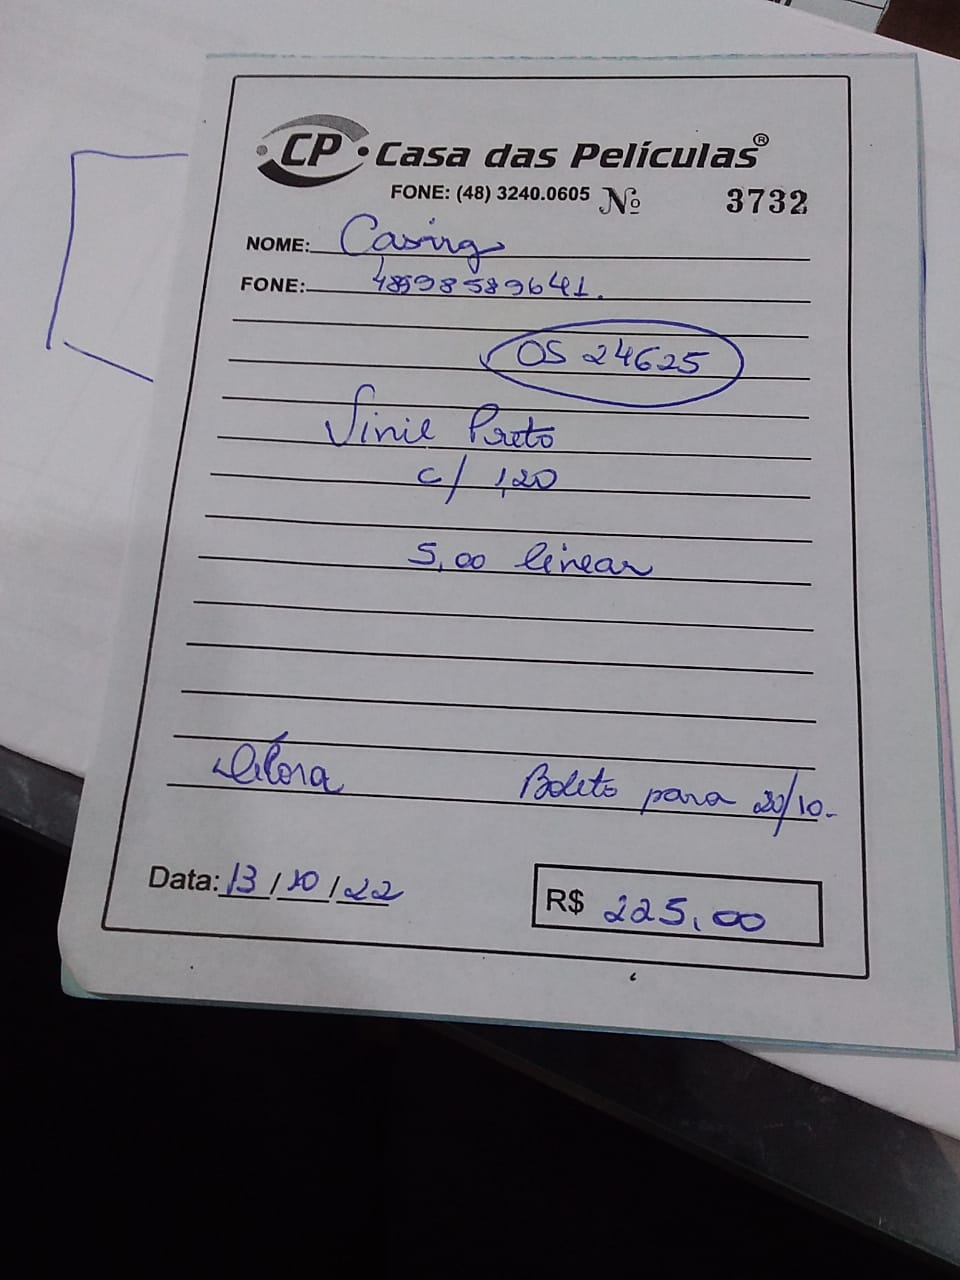 CP Casa das Películas®
FONE: (48) 3240.0605 Nº 3732
NOME: Casing
FONE: 48998589641.
OS 24625
Vinil Preto
c/ 1,20
5,00 linear
Débora Boleto para 20/10.
Data: 13/10/22 R$ 225,00